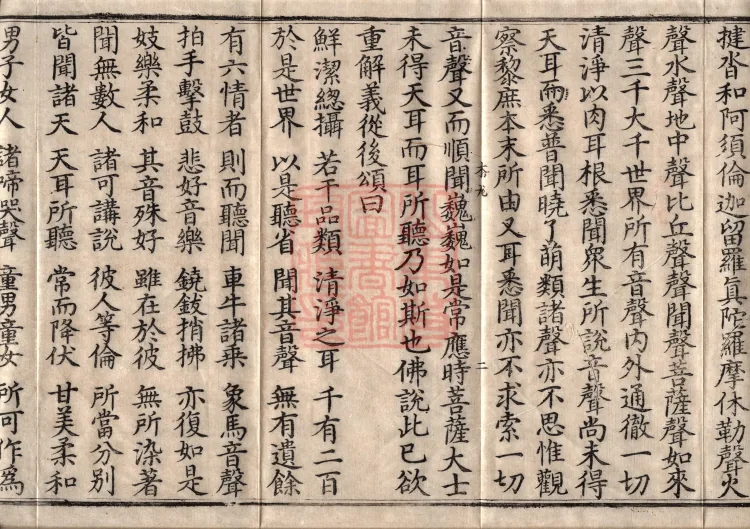 揵沓和阿須倫迦留羅真陀羅摩休勒聲火
聲水聲地中聲比丘聲聲聞聲菩薩聲如來
聲三千大千世界所有音聲內外通徹一切
清淨以肉耳根悉聞眾生所說音聲尚未得
天耳而悉普聞曉了萌類諸聲亦不思惟觀
察黎庶本末所由又耳悉聞亦不求索一切
音聲又而順聞巍巍如是常應時菩薩大士
未得天耳而耳所聽乃如斯也佛說此已欲
重解義從後頌曰
鮮潔總攝 若干品類 清淨之耳 千有二百
於是世界 以是聽省 聞其音聲 無有遺餘
有六情者 則而聽聞 車牛諸乘 象馬音聲
拍手擊鼓 悲好音樂 鐃鈸捎拂 亦復如是
妓樂柔和 其音殊好 雖在於彼 無所染著
聞無數人 諸可講說 彼人等倫 所當分別
皆聞諸天 天耳所聽 常而降伏 甘美柔和
男子女人 諸啼哭聲 童男童女 所可作為